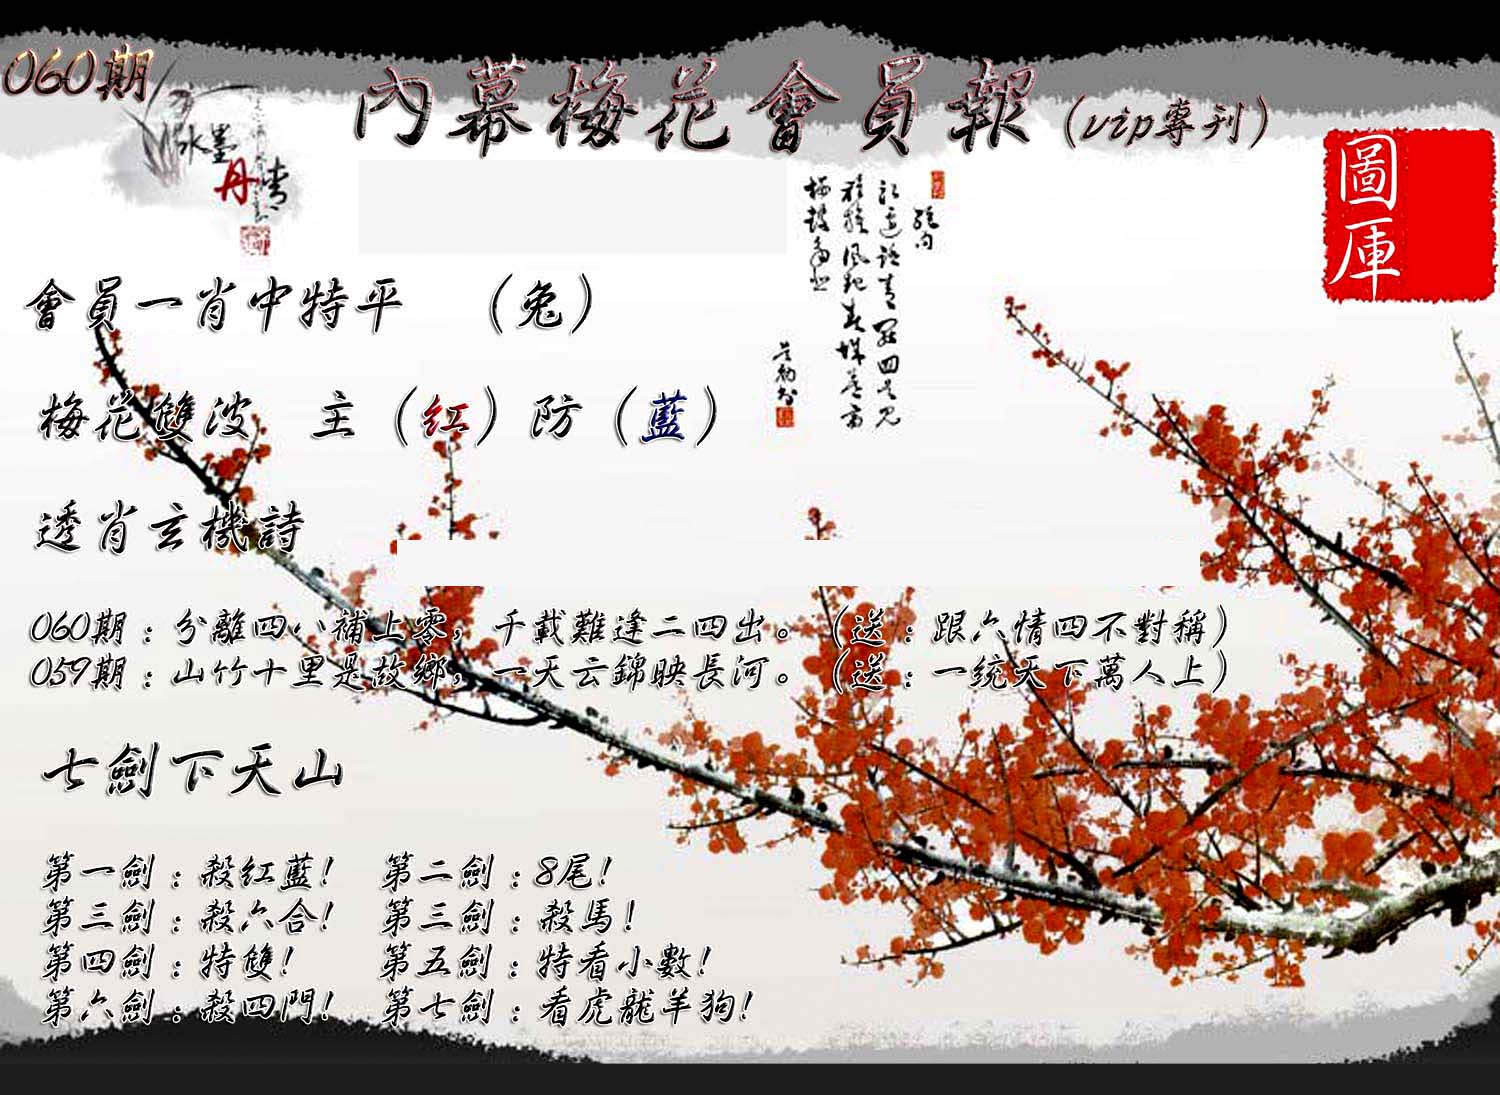 060期
內幕梅花會員報(vip專刊)
水墨
丹青
圖庫
會員一肖中特平 (兔)
梅花雙波 主(紅)防(藍)
透肖玄機詩
060期：分離四八補上零，千載難逢二四出。(送：跟六情四不對稱)
059期：山竹十里是故鄉，一天云錦映長河。(送：一統天下萬人上)
七劍下天山
第一劍：殺紅藍! 第二劍：8尾!
第三劍：殺六合! 第三劍：殺馬!
第四劍：特雙! 第五劍：特看小數!
第六劍：殺四門! 第七劍：看虎龍羊狗!